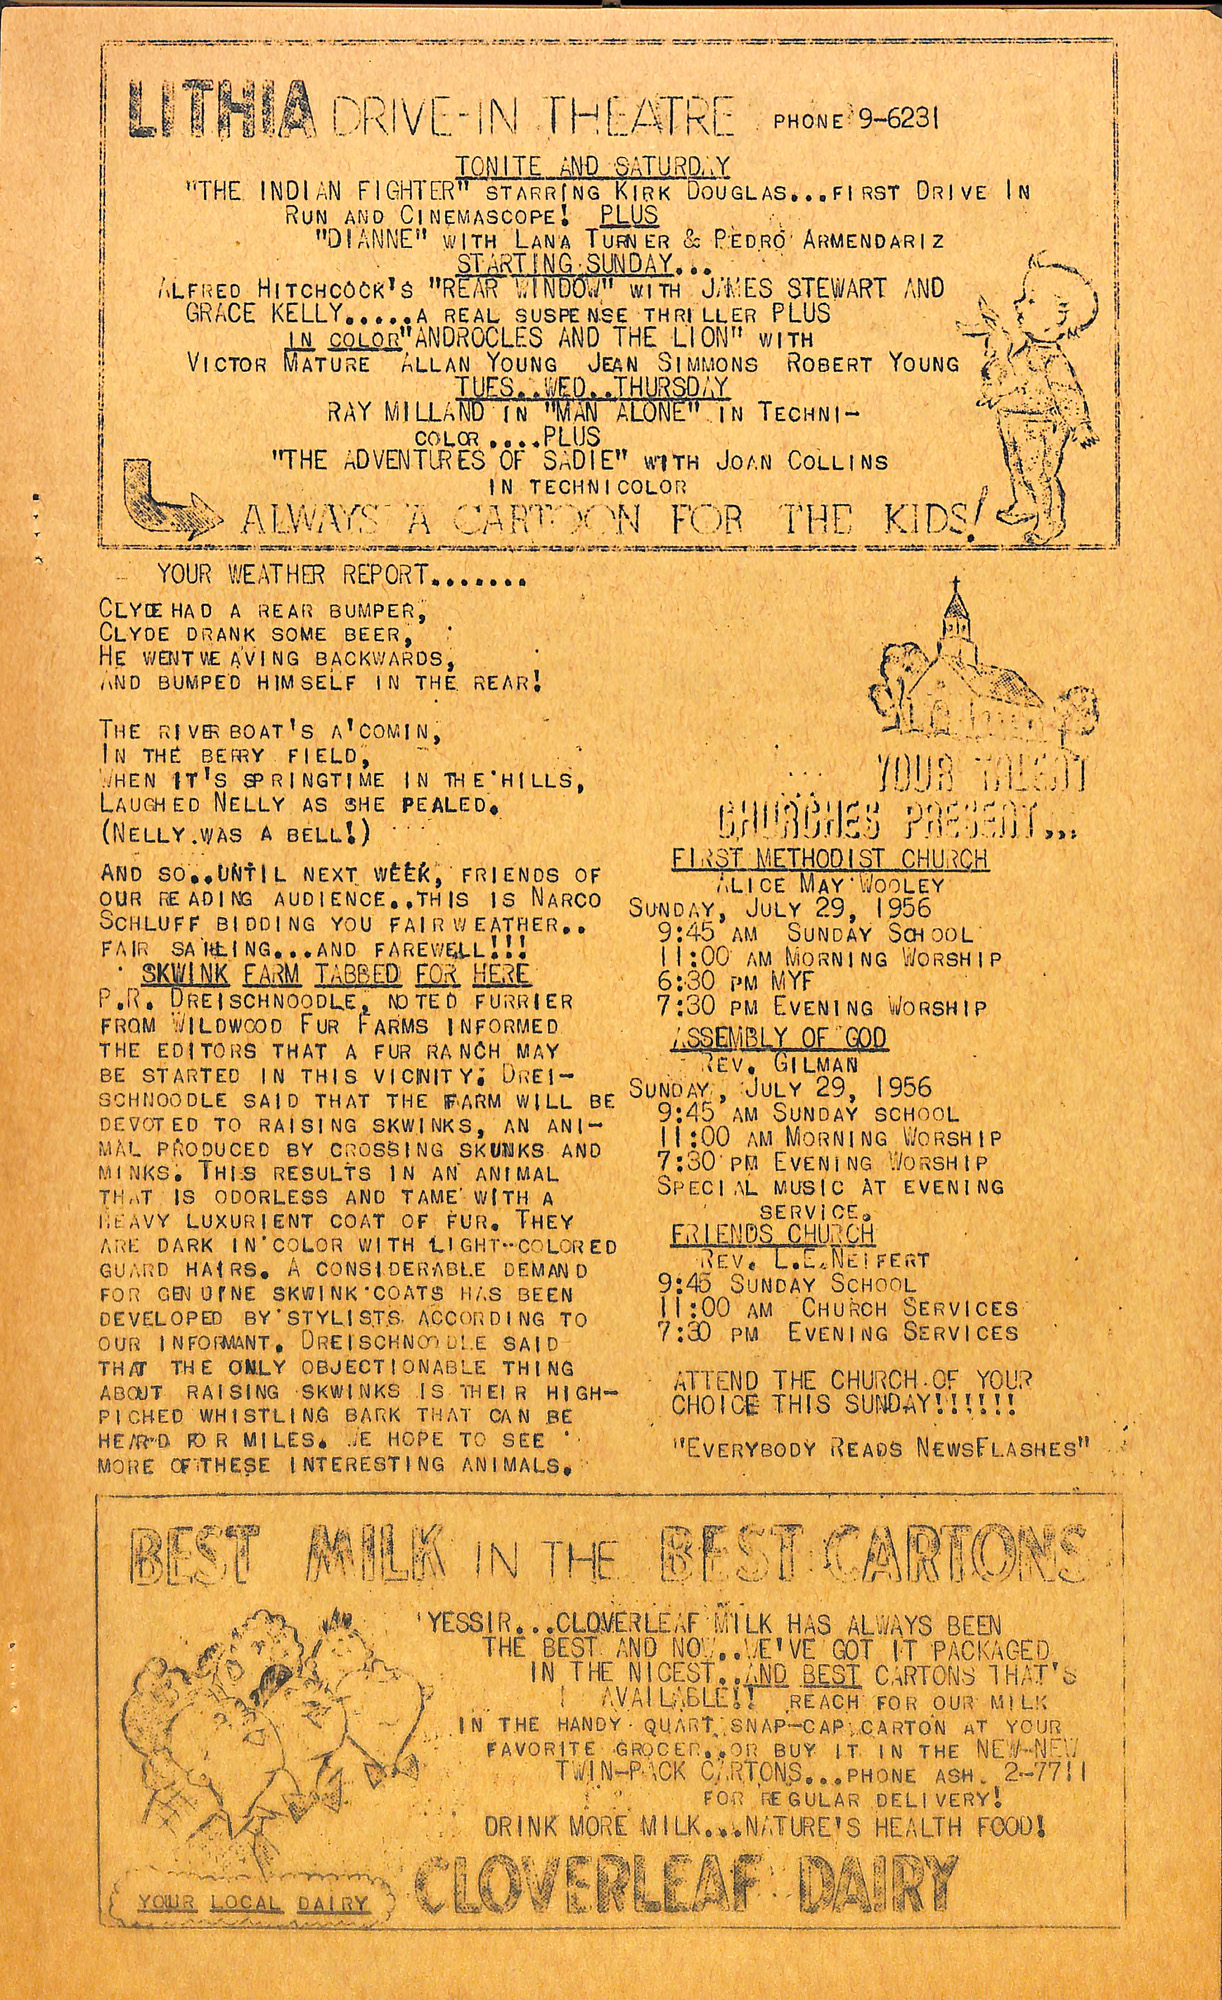 LITHIA DRIVE-IN THEATRE PHONE 9-6231
TONITE AND SATURDAY
"THE INDIAN FIGHTER" STARRING KIRK DOUGLAS...FIRST DRIVE IN
RUN AND CINEMASCOPE! PLUS
"DIANNE" WITH LANA TURNER & PEDRO ARMENDARIZ
STARTING SUNDAY...
ALFRED HITCHCOCK'S "REAR WINDOW" WITH JAMES STEWART AND
GRACE KELLY.....A REAL SUSPENSE THRILLER PLUS
IN COLOR "ANDROCLES AND THE LION" WITH
VICTOR MATURE ALLAN YOUNG JEAN SIMMONS ROBERT YOUNG
TUES..WED..THURSDAY
RAY MILLAND IN "MAN ALONE" IN TECHNI-
COLOR....PLUS
"THE ADVENTURES OF SADIE" WITH JOAN COLLINS
IN TECHNICOLOR
ALWAYS A CARTOON FOR THE KIDS!
YOUR WEATHER REPORT.......
CLYDE HAD A REAR BUMPER,
CLYDE DRANK SOME BEER,
HE WENT WEAVING BACKWARDS,
AND BUMPED HIMSELF IN THE REAR!
THE RIVER BOAT'S A'COMIN,
IN THE BERRY FIELD,
WHEN IT'S SPRINGTIME IN THE HILLS,
LAUGHED NELLY AS SHE PEALED.
(NELLY WAS A BELL!)
AND SO..UNTIL NEXT WEEK, FRIENDS OF
OUR READING AUDIENCE..THIS IS NARCO
SCHLUFF BIDDING YOU FAIR WEATHER..
FAIR SAILING...AND FAREWELL!!!
SKWINK FARM TABBED FOR HERE
P.R. DREISCHNOODLE, NOTED FURRIER
FROM WILDWOOD FUR FARMS INFORMED
THE EDITORS THAT A FUR RANCH MAY
BE STARTED IN THIS VICINITY. DREI-
SCHNOODLE SAID THAT THE FARM WILL BE
DEVOTED TO RAISING SKWINKS, AN ANI-
MAL PRODUCED BY CROSSING SKUNKS AND
MINKS. THIS RESULTS IN AN ANIMAL
THAT IS ODORLESS AND TAME WITH A
HEAVY LUXURIENT COAT OF FUR. THEY
ARE DARK IN COLOR WITH LIGHT-COLORED
GUARD HAIRS. A CONSIDERABLE DEMAND
FOR GENUINE SKWINK COATS HAS BEEN
DEVELOPED BY STYLISTS ACCORDING TO
OUR INFORMANT. DREISCHNOODLE SAID
THAT THE ONLY OBJECTIONABLE THING
ABOUT RAISING SKWINKS IS THEIR HIGH-
PICHED WHISTLING BARK THAT CAN BE
HEARD FOR MILES. WE HOPE TO SEE
MORE OF THESE INTERESTING ANIMALS.
YOUR TALENT
CHURCHES PRESENT...
FIRST METHODIST CHURCH
ALICE MAY WOOLEY
SUNDAY, JULY 29, 1956
9:45 AM SUNDAY SCHOOL
11:00 AM MORNING WORSHIP
6:30 PM MYF
7:30 PM EVENING WORSHIP
ASSEMBLY OF GOD
REV. GILMAN
SUNDAY, JULY 29, 1956
9:45 AM SUNDAY SCHOOL
11:00 AM MORNING WORSHIP
7:30 PM EVENING WORSHIP
SPECIAL MUSIC AT EVENING
SERVICE.
FRIENDS CHURCH
REV. L.E. NEIFERT
9:45 SUNDAY SCHOOL
11:00 AM CHURCH SERVICES
7:30 PM EVENING SERVICES
ATTEND THE CHURCH OF YOUR
CHOICE THIS SUNDAY!!!!!!
"EVERYBODY READS NEWSFLASHES"
BEST MILK IN THE BEST CARTONS
YESSIR...CLOVERLEAF MILK HAS ALWAYS BEEN
THE BEST AND NOW..WE'VE GOT IT PACKAGED
IN THE NICEST..AND BEST CARTONS THAT'S
AVAILABLE!! REACH FOR OUR MILK
IN THE HANDY QUART SNAP-CAP CARTON AT YOUR
FAVORITE GROCER..OR BUY IT IN THE NEW-NEW
TWIN-PACK CARTONS...PHONE ASH. 2-7711
FOR REGULAR DELIVERY!
DRINK MORE MILK...NATURE'S HEALTH FOOD!
YOUR LOCAL DAIRY
CLOVERLEAF DAIRY